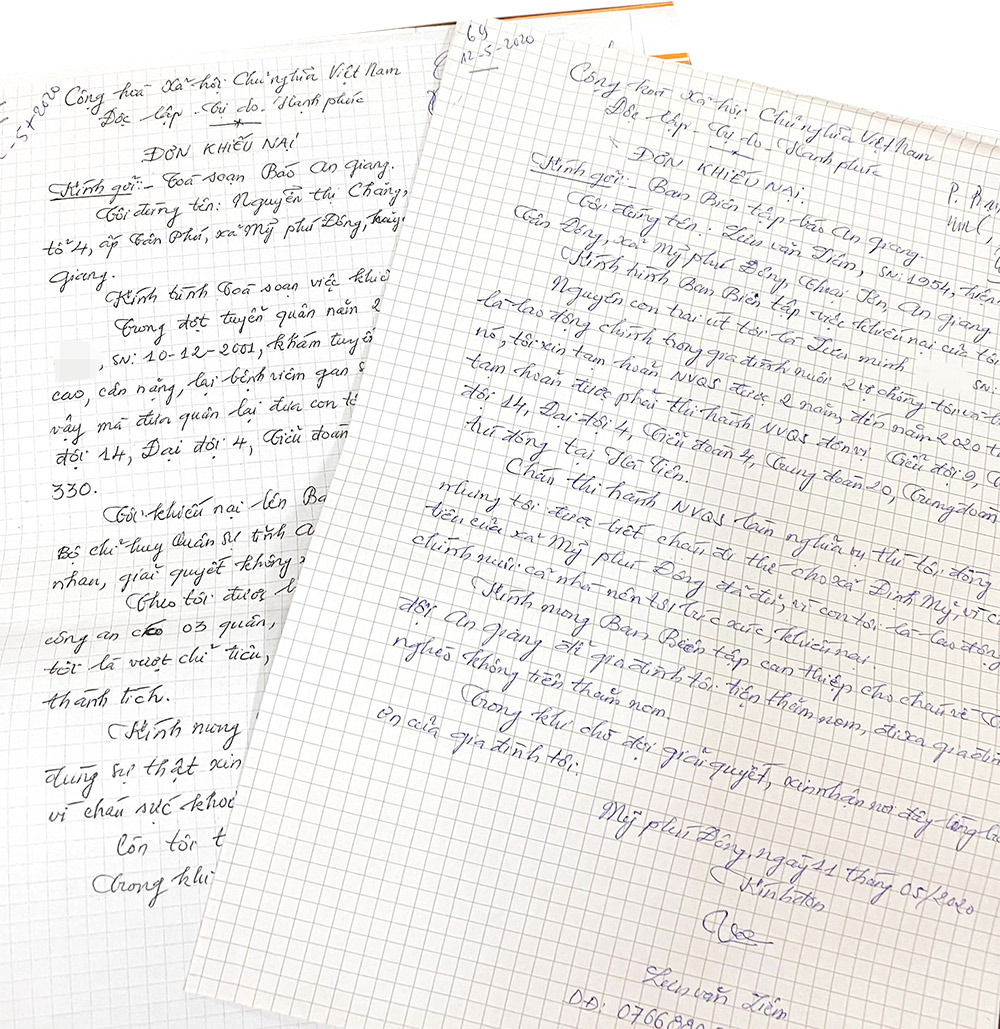 5-2020
Cộng hoà xã hội Chủ nghĩa Việt Nam
Độc lập - Tự do - Hạnh phúc
ĐƠN KHIẾU NẠI
Kính gởi:- Toà soạn Báo An giang.
Tôi đứng tên: Nguyễn thị Chăng,
tổ 4, ấp Tân Phú, xã Mỹ phú Đông,
giang.
Kính trình Toà soạn việc
Trong đợt tuyển quân năm 2
, SN: 10-12-2001, khám tuyển
cao, cân nặng, lại bệnh viêm gan
vậy mà đưa quân lại đưa con
đội 14, Đại đội 4, Tiểu đoàn
330.
Tôi khiếu nại lên
Bộ chỉ huy Quân sự tỉnh
nhau, giải quyết không
Theo tôi được
công an 03 quân,
tôi là vượt chỉ tiêu,
thành tích.
Kính mong
đúng sự thật xin
vì cháu sức khoẻ
Còn tôi
Trong khi
64
12-5-2020
Cộng hoà xã hội Chủ nghĩa Việt Nam
Độc lập - Tự do - Hạnh phúc
ĐƠN KHIẾU NẠI.
Kính gởi:- Ban Biên tập báo An giang.
Tôi đứng tên: Lưu văn Liêm, SN: 1954, hiện
Tân Đông, xã Mỹ phú Đông, Thoại Sơn, An giang
Kính trình Ban Biên tập việc khiếu nại của tôi
Nguyên con trai út tôi là Lưu minh SN:
là lao động chính trong gia đình nuôi 2 vợ chồng tôi và
nó, tôi xin tạm hoãn NVQS được 2 năm, đến năm 2020
tạm hoãn được phải thi hành NVQS đơn vị Tiểu đội 9,
đội 14, Đại đội 4, Tiểu đoàn 4, Trung đoàn 20,
trú đóng tại Hà Tiên.
Cháu thi hành NVQS làm nghĩa vụ thì tôi đồng
nhưng tôi được biết cháu đi thế cho xã Định Mỹ, vì
tiêu của xã Mỹ phú Đông đã đủ, vì con tôi là lao động
chính nuôi cả nhà nên tôi bức xúc, khiếu nại.
Kính mong Ban Biên tập can thiệp cho cháu về
đội An giang để gia đình tôi tiện thăm nom, đi xa gia đình
nghèo không tiền thăm nom.
Trong khi chờ đợi giải quyết, xin nhận nơi đây lòng
ơn của gia đình tôi.
Mỹ phú Đông, ngày 11 tháng 05/2020
Kính đơn
Lưu văn Liêm